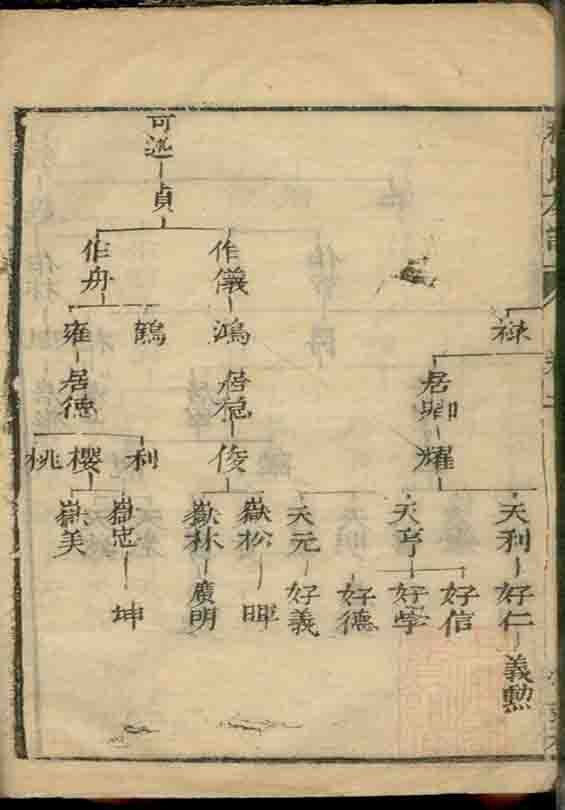 可述
貞
作儀
作舟
祿
鴻
鶴
雍
居卿
居德
耀
俊
利
櫻
桃
天利
天亨
天元
嶽松
嶽林
嶽忠
嶽美
好仁
好信
好學
好德
好義
廣明
坤
義勲